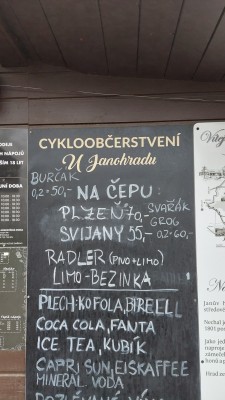 CYKLOOBČERSTVENÍ
U Janohradu
BURČÁK
0,2=50,-
NA ČEPU:
PLZEŇ 70,-
SVIJANY 55,-
SVAŘÁK
GROG
0,2=60,-
RADLER (PIVO+LIMO)
LIMO-BEZINKA
PLECH: KOFOLA, BIRELL
COCA COLA, FANTA
ICE TEA, KUBÍK
CAPRI SUN, EISKAFFEE
MINERAL VODA